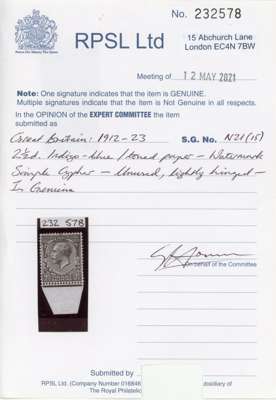 No. 232578
RPSL Ltd
15 Abchurch Lane
London EC4N 7BW
Meeting of 12 MAY 2021
Note: One signature indicates that the item is GENUINE.
Multiple signatures indicate that the item is Not Genuine in all respects.
In the OPINION of the EXPERT COMMITTEE the item
submitted as
Great Britain: 1912-23 S.G. No. N21(15)
2½d. Indigo-blue / toned paper - Watermark
Simple Cypher - Unused, lightly hinged -
Is Genuine
232 578
on behalf of the Committee
Submitted by
RPSL Ltd. (Company Number 016646 subsidiary of
The Royal Philatelic